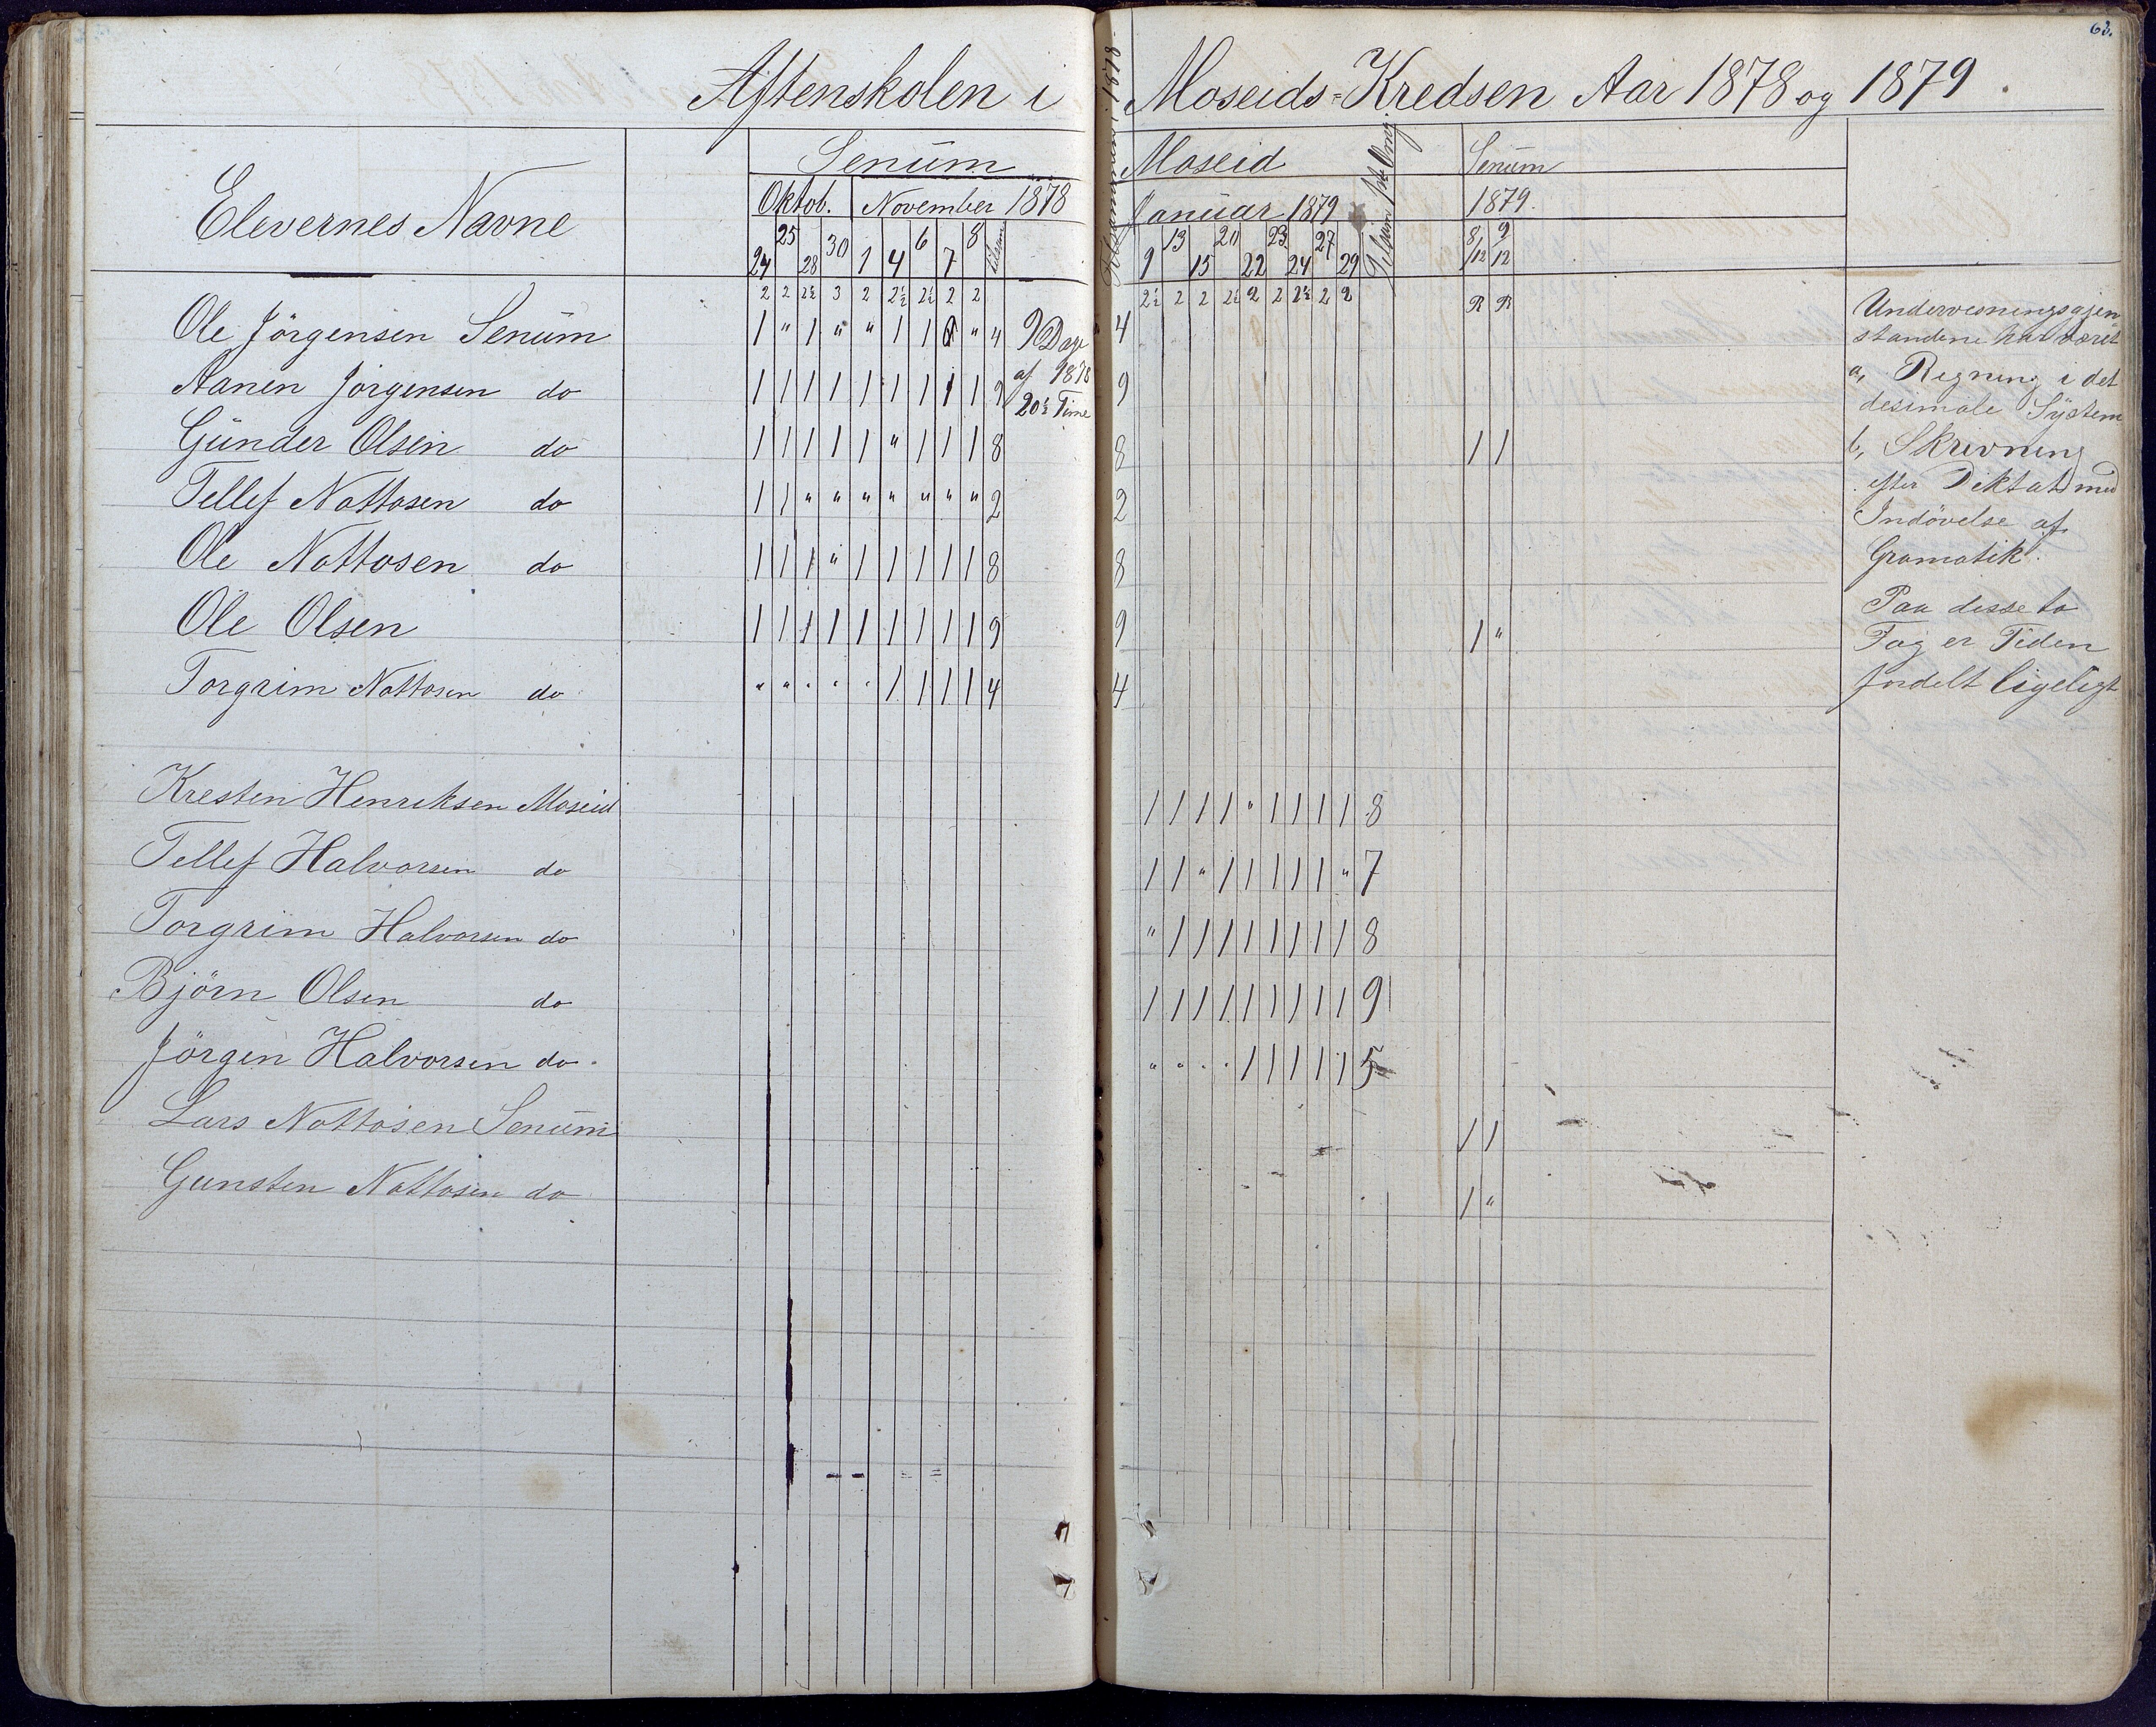 63.
Aftenskolen i Moseids-Kredsen Aar 1878 og 1879.
Elevernes Navne
Senüm Moseid Senüm
Oktob. November 1878 Januar 1879 1879.
24 25 28 30 1 4 6 7 8 tilsam 1878 9 13 15 20 22 23 24 27 29 Tilsam 8/12 9/12
2 2 2½ 3 2 2½ 2½ 2 2 2½ 2 2 2½ 2 2 2½ 2 2 R R
Ole Jörgensen Senüm 1 " 1 " " 1 1 " 4 9 Dage " 4
Aanen Jörgensen do 1 1 1 1 1 1 1 1 1 9 af 1878 9
20½ Time
Günder Olsen do 1 1 1 1 1 " 1 1 1 8 8 1 1
Tellef Nottosen do 1 1 " " " " " " " 2 2
Ole Nottosen do 1 1 1 " 1 1 1 1 1 8 8
Ole Olsen 1 1 1 1 1 1 1 1 1 9 9 1 "
Torgrim Nottosen do " " " " " 1 1 1 1 4 4
Kresten Henriksen Moseid 1 1 1 1 " 1 1 1 1 8
Tellef Halvorsen do 1 1 " 1 1 1 1 1 " 7
Torgrim Halvorsen do " 1 1 1 1 1 1 1 1 8
Björn Olsen do 1 1 1 1 1 1 1 1 1 9
Jörgen Halvorsen do. " " " " 1 1 1 1 1 5
Lars Nottosen Senüm 1 1
Gunsten Nottosen do 1 "
Undervisningsgjen
standene har været
a, Regning i det
desimale System
b, Skrivning
efter Diktat med
Indövelse af
Gramatik.
Paa disse to
Fag er Tiden
fordelt ligeligt